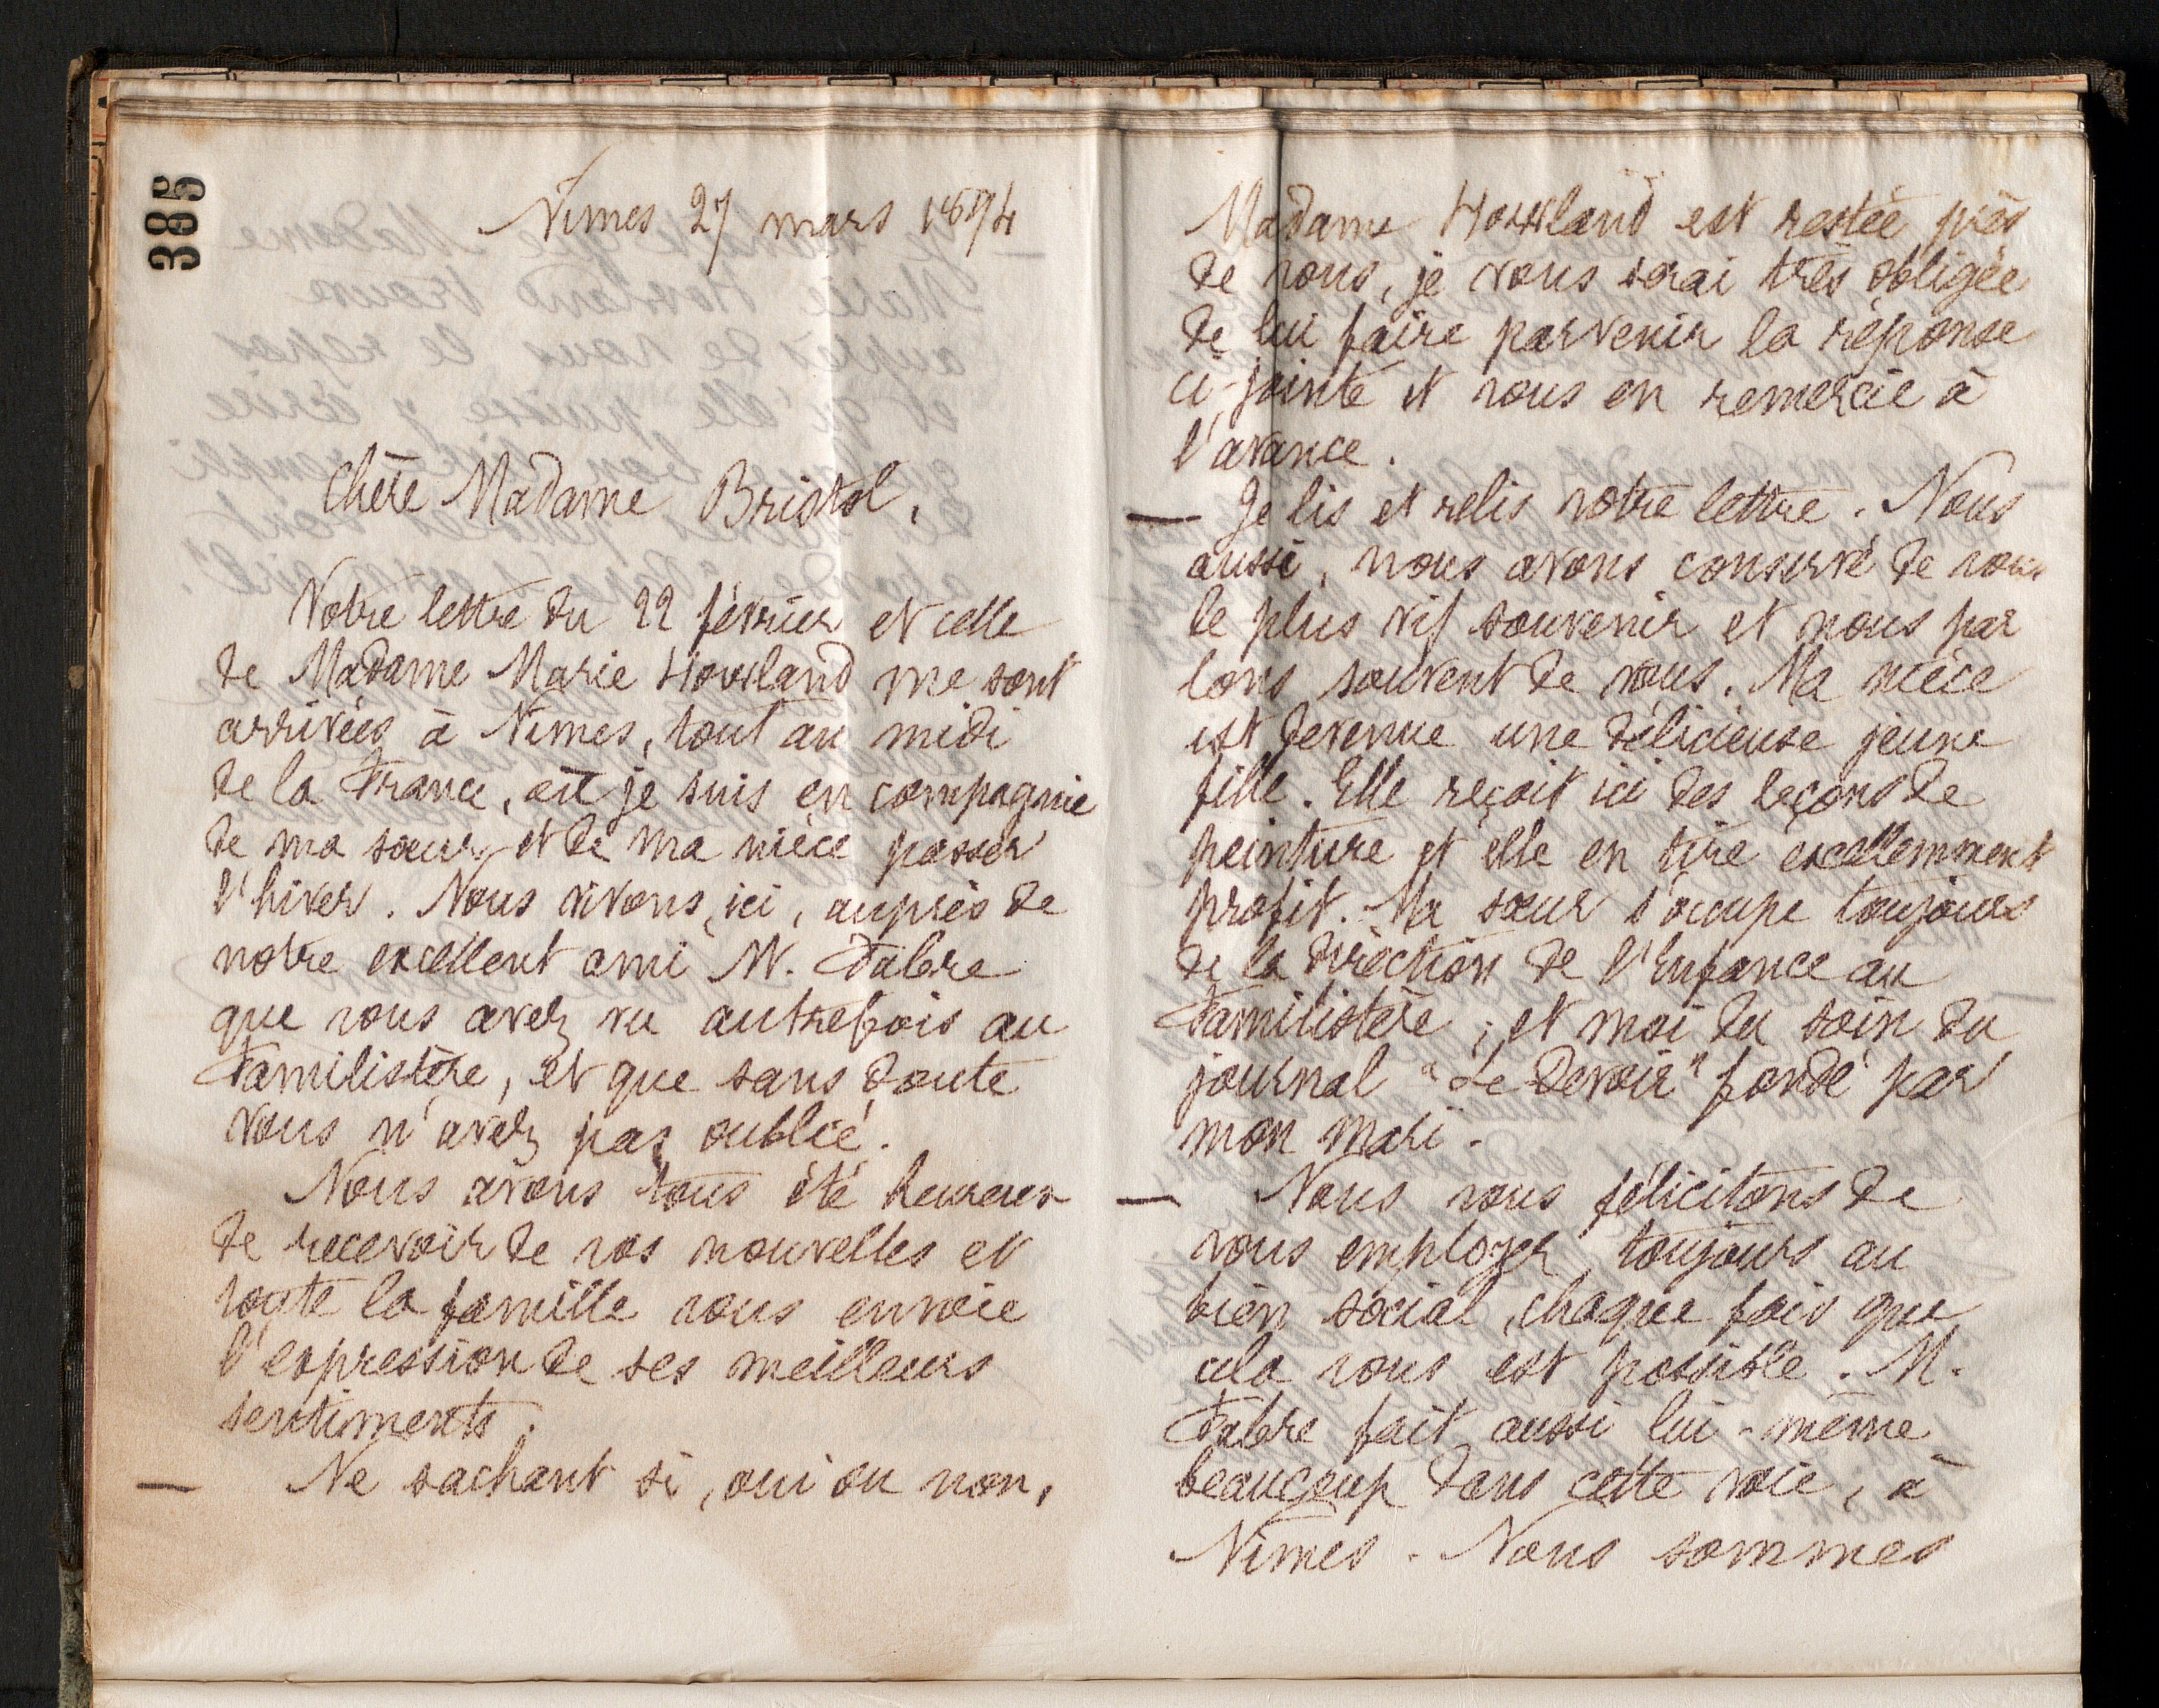 385
Nîmes 27 mars 1894
Chère Madame Bristol,
Votre lettre du 22 février et celle
de Madame Marie Howland me sont
arrivées à Nîmes, tout au midi
de la France, où je suis en compagnie
de ma sœur et de ma nièce passer
l'hiver. Nous vivons, ici, auprès de
notre excellent ami M. Fabre
que vous avez vu autrefois au
Familistère, et que sans doute
vous n'avez pas oublié.
Nous avons tous été heureux
de recevoir de vos nouvelles et
toute la famille vous envoie
l'expression de ses meilleurs
sentiments.
— Ne sachant si, oui ou non,
Madame Howland est restée près
de vous, je vous serai très obligée
de lui faire parvenir la réponse
ci-jointe et vous en remercie à
l'avance.
— Je lis et relis votre lettre. Nous
aussi, nous avons conservé de vous
le plus vif souvenir et nous par
lons souvent de vous. Ma nièce
est devenue une délicieuse jeune
fille. Elle reçoit ici des leçons de
peinture et elle en tire excellemment
profit. Ma sœur s'occupe toujours
de la direction de l'Enfance au
Familistère ; et moi du soin du
journal "Le Devoir" fondé par
mon mari.
— Nous vous félicitons de
vous employer toujours au
bien social, chaque fois que
cela vous est possible. M.
Fabre fait aussi lui-même
beaucoup dans cette voie, à
Nîmes. Nous sommes